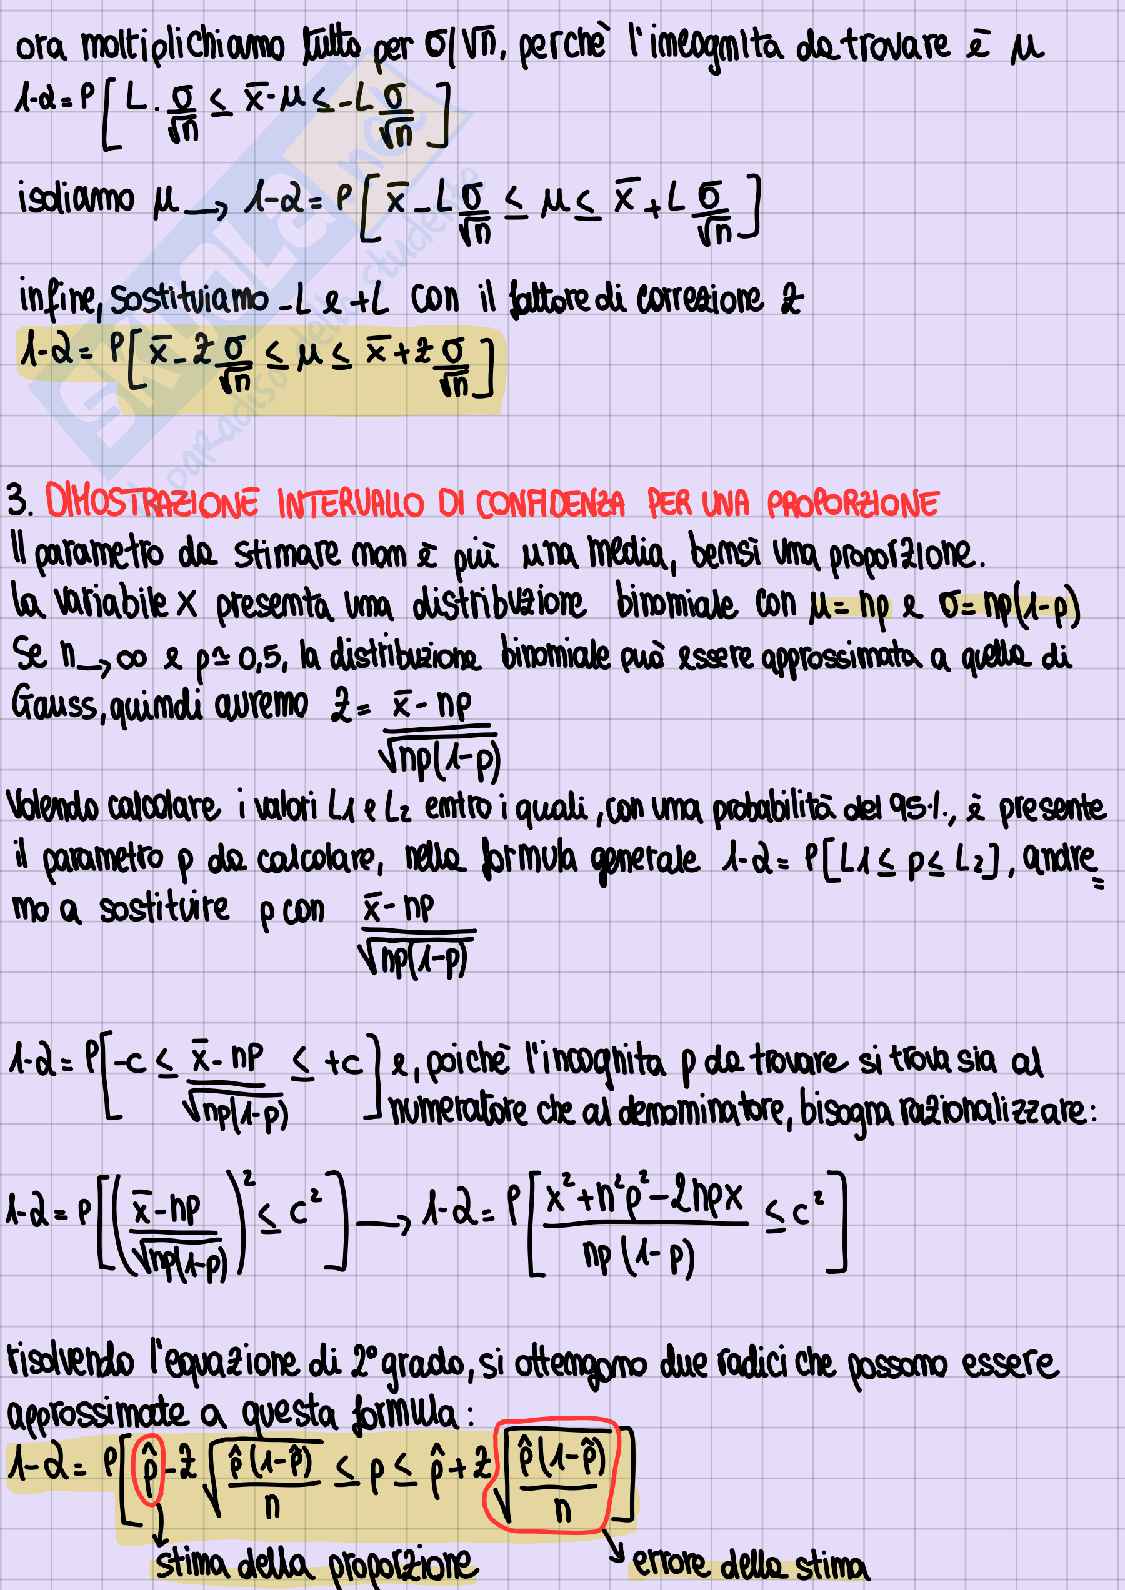 ora moltiplichiamo tutto per σ/√n, perchè l'incognita da trovare è μ
1-α = P[L · σ/√n ≤ x̄ - μ ≤ -L σ/√n]
isoliamo μ → 1-α = P[x̄ - L σ/√n ≤ μ ≤ x̄ + L σ/√n]
infine, sostituiamo -L e +L con il fattore di correzione z
1-α = P[x̄ - z σ/√n ≤ μ ≤ x̄ + z σ/√n]
3. DIMOSTRAZIONE INTERVALLO DI CONFIDENZA PER UNA PROPORZIONE
Il parametro da stimare non è più una media, bensì una proporzione.
La variabile x presenta una distribuzione binomiale con μ = np e σ = np(1-p)
Se n → ∞ e p ≃ 0,5, la distribuzione binomiale può essere approssimata a quella di
Gauss, quindi avremo z = (x̄ - np)/√(np(1-p))
Volendo calcolare i valori L1 e L2 entro i quali, con una probabilità del 95%, è presente
il parametro p da calcolare, nella formula generale 1-α = P[L1 ≤ p ≤ L2], andre=
mo a sostituire p con (x̄ - np)/√(np(1-p))
1-α = P[-c ≤ (x̄ - np)/√(np(1-p)) ≤ +c] e, poichè l'incognita p da trovare si trova sia al
numeratore che al denominatore, bisogna razionalizzare:
1-α = P[((x̄ - np)/√(np(1-p)))² ≤ c²] → 1-α = P[(x² + n²p² - 2npx)/(np(1-p)) ≤ c²]
risolvendo l'equazione di 2° grado, si ottengono due radici che possono essere
approssimate a questa formula:
1-α = P[p̂ - z √(p̂(1-p̂)/n) ≤ p ≤ p̂ + z √(p̂(1-p̂)/n)]
stima della proporzione
errore della stima
SKUOLA.net
il paradiso dello studente